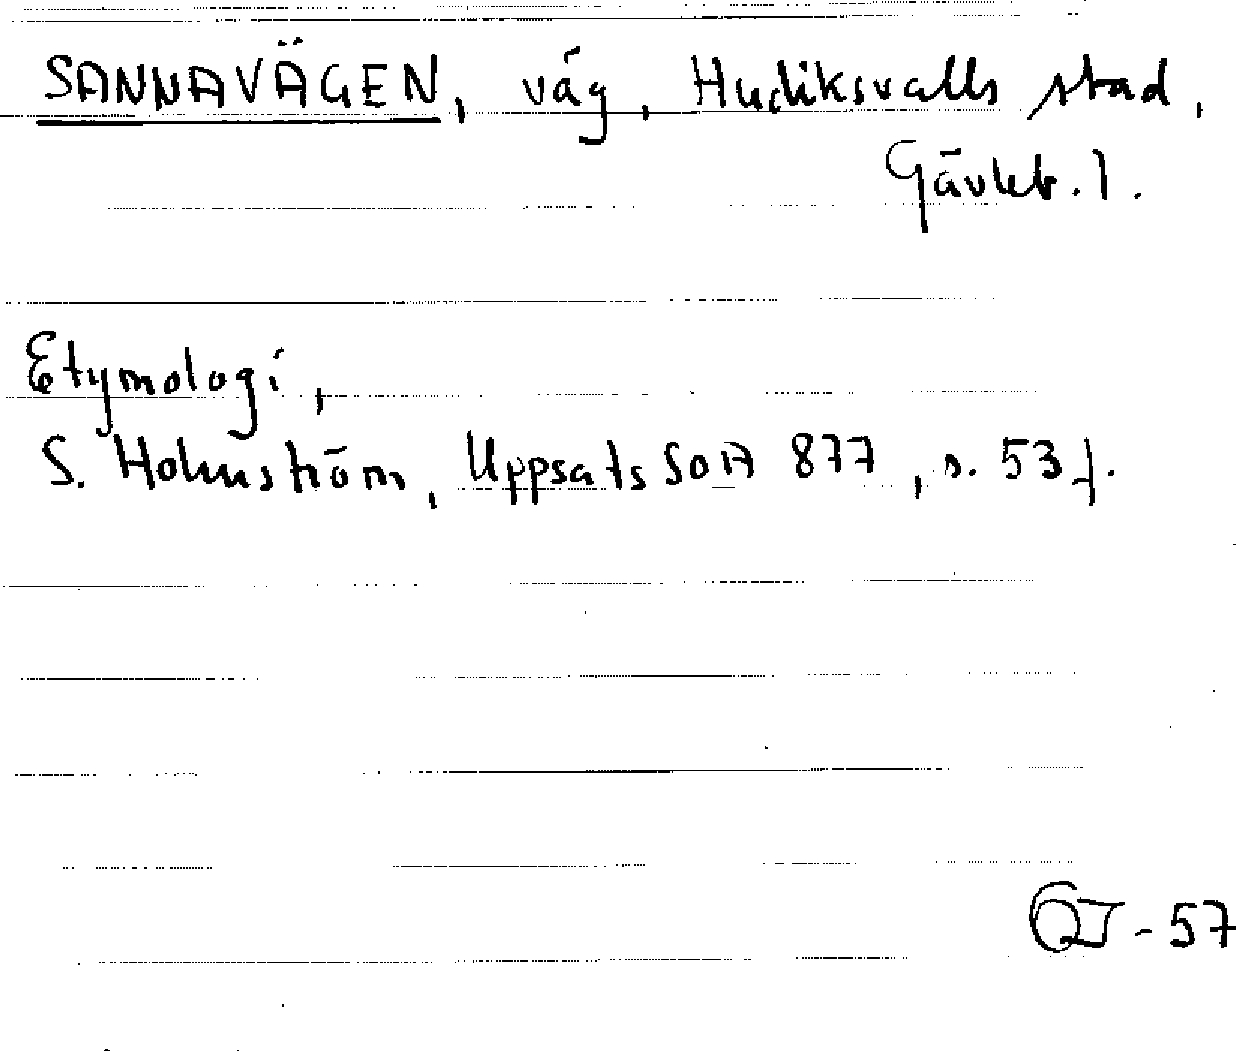 SANNAVÄGEN, väg, Hudiksvalls stad,
Gävleb. l.
Etymologi,
S. Holmström, Uppsats SOA 877, s. 53 f.
-57